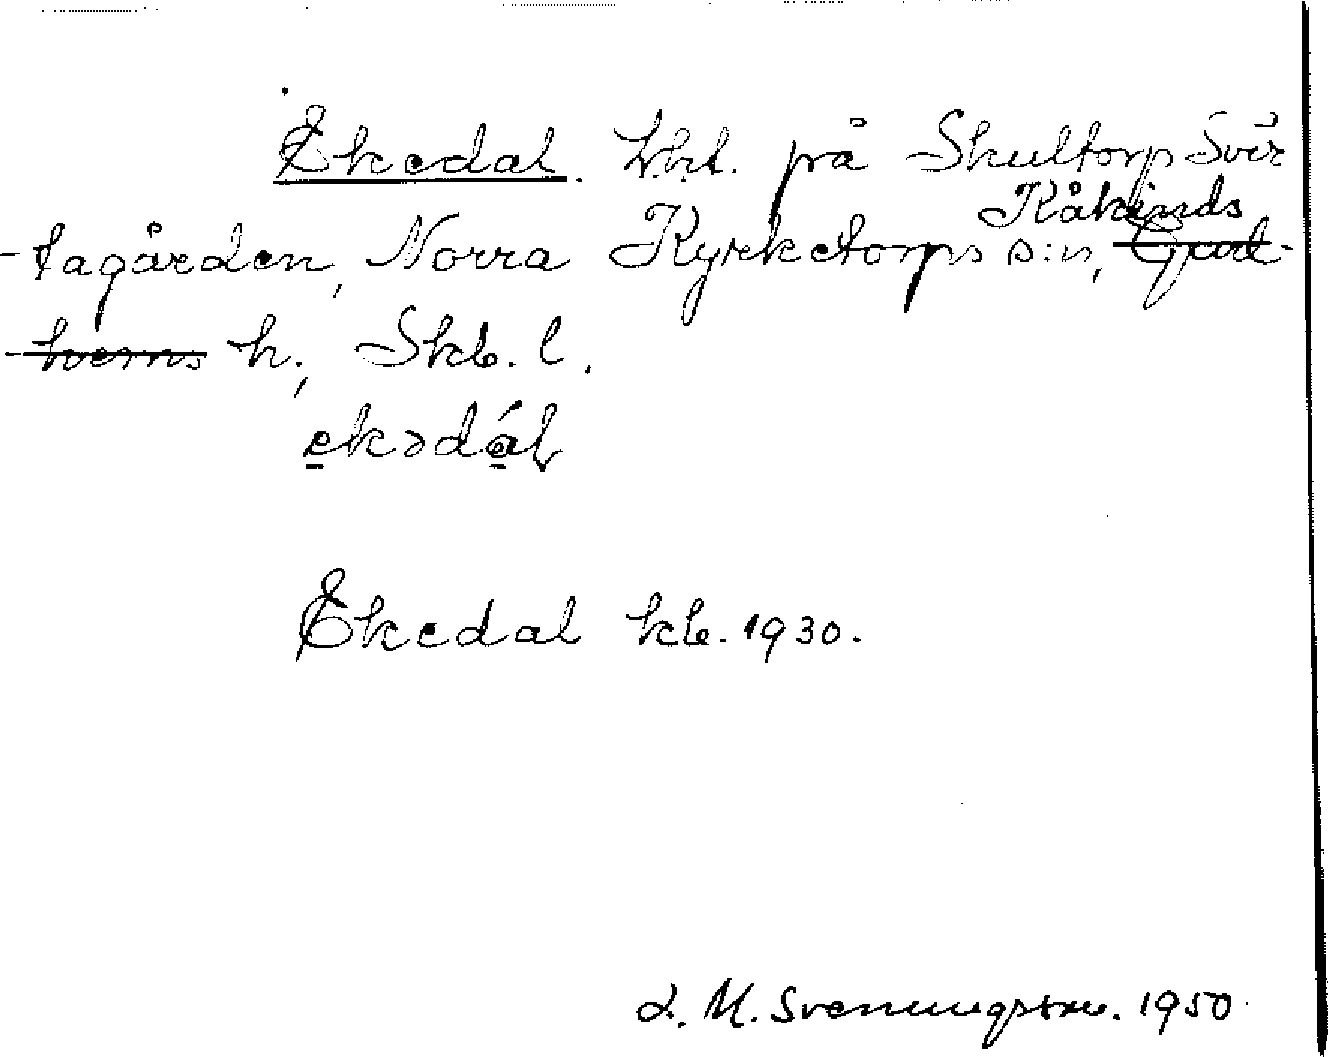 Ekedal. Lht. på Skultorp Svär
Kåkinds
-tagården, Norra Kyrketorps s:n, Gud-
-hems h., Skb. l.
ekədál
Ekedal kb. 1930.
L. M. Svenungsson. 1950.